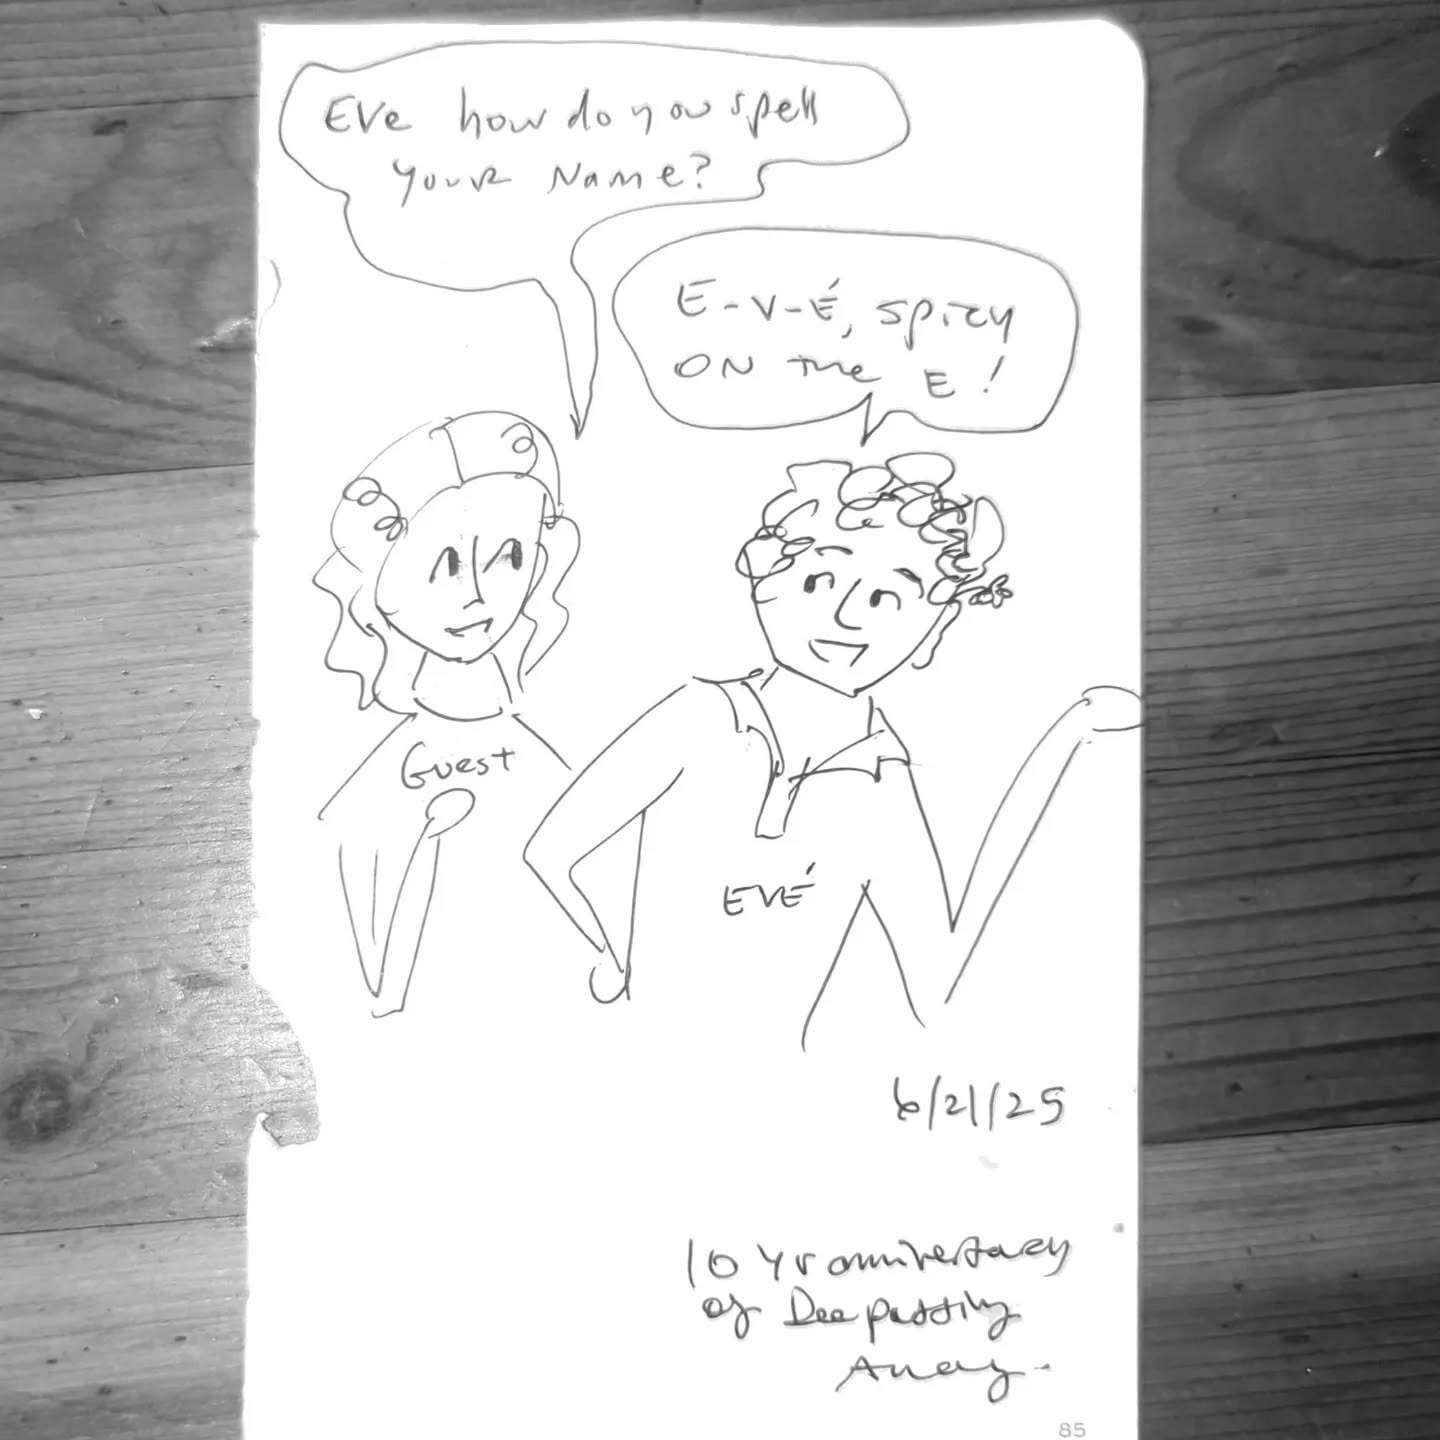 Eve how do you spell
your Name?
E-V-É, spicy
ON the E!
Guest
EVÉ
6/21/25
10 Yr anniversary
of Dee passing
Away.
85